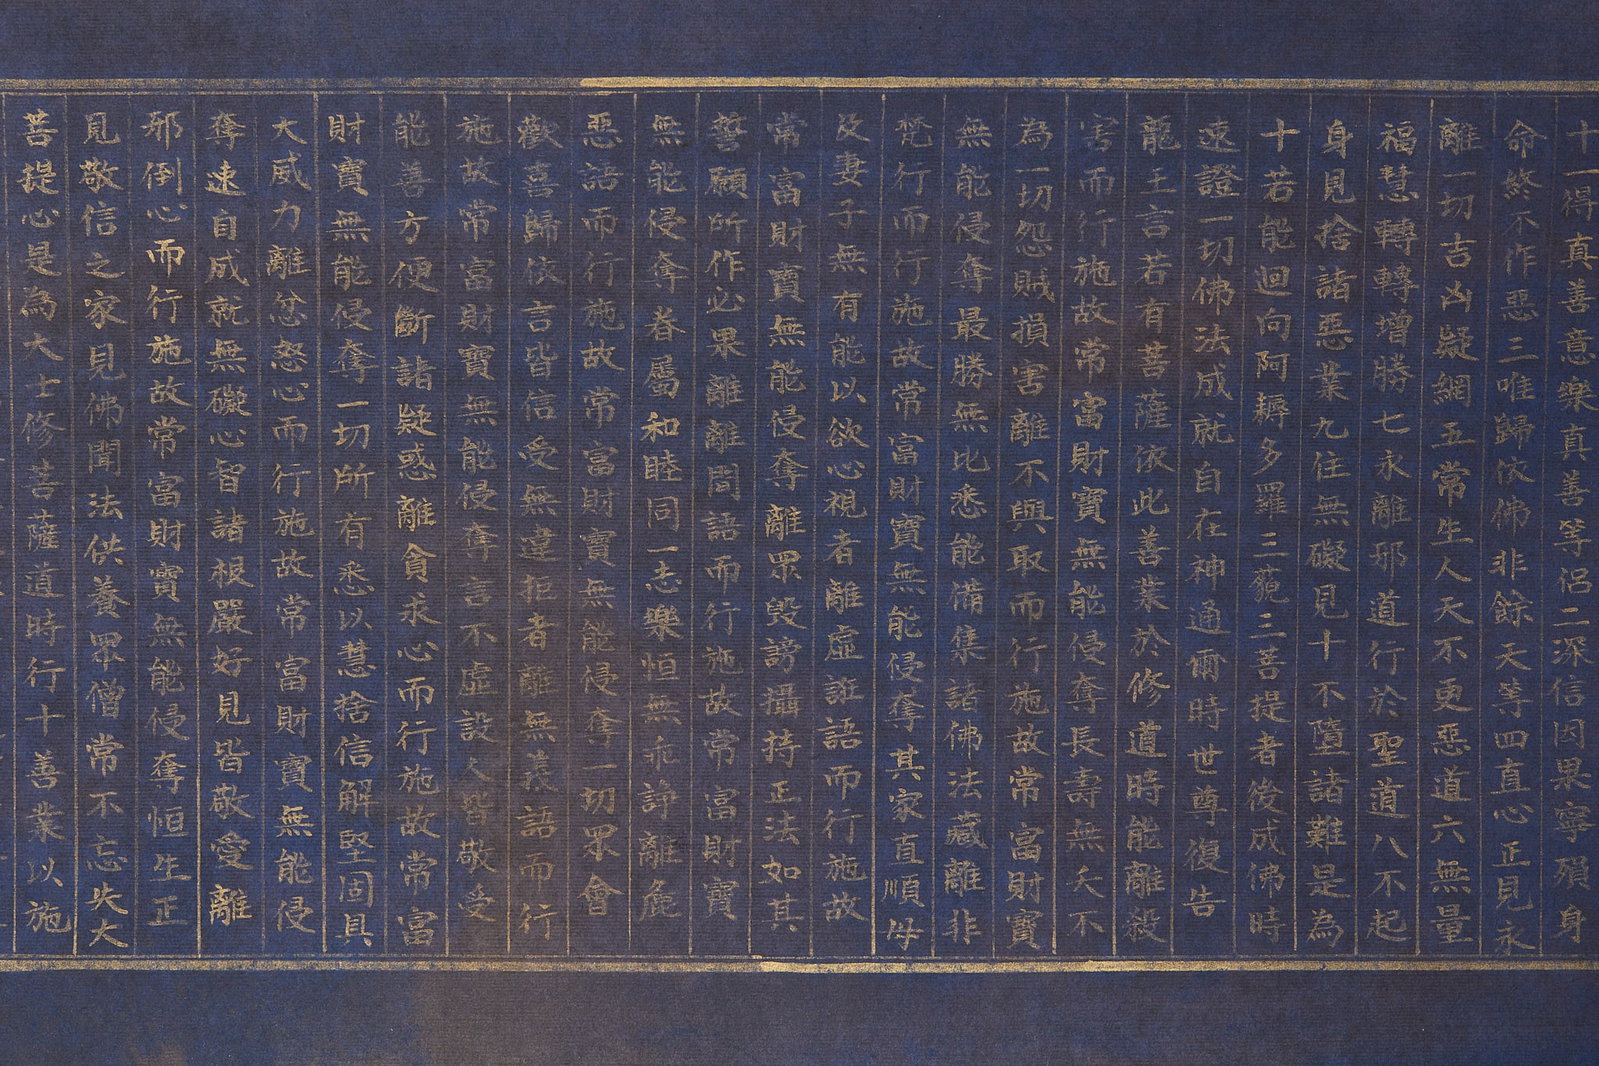 十一得真善意樂真善等侶二深信因果寧殞身
命終不作惡三唯歸依佛非餘天等四直心正見永
離一切吉凶疑網五常生人天不更惡道六無量
福慧轉轉增勝七永離邪道行於聖道八不起
身見捨諸惡業九住無礙見十不墮諸難是為
十若能迴向阿耨多羅三藐三菩提者後成佛時
速證一切佛法成就自在神通爾時世尊復告
龍王言若有菩薩依此善業於修道時能離殺
害而行施故常富財寶無能侵奪長壽無夭不
為一切怨賊損害離不與取而行施故常富財寶
無能侵奪最勝無比悉能備集諸佛法藏離非
梵行而行施故常富財寶無能侵奪其家直順母
及妻子無有能以欲心視者離虛誑語而行施故
常富財寶無能侵奪離眾毀謗攝持正法如其
誓願所作必果離離間語而行施故常富財寶
無能侵奪眷屬和睦同一志樂恒無乖諍離麁
惡語而行施故常富財寶無能侵奪一切眾會
歡喜歸依言皆信受無違拒者離無義語而行
施故常富財寶無能侵奪言不虛設人皆敬受
能善方便斷諸疑惑離貪求心而行施故常富
財寶無能侵奪一切所有悉以慧捨信解堅固具
大威力離忿怒心而行施故常富財寶無能侵
奪速自成就無礙心智諸根嚴好見皆敬愛離
邪倒心而行施故常富財寶無能侵奪恒生正
見敬信之家見佛聞法供養眾僧常不忘失大
菩提心是為大士修菩薩道時行十善業以施